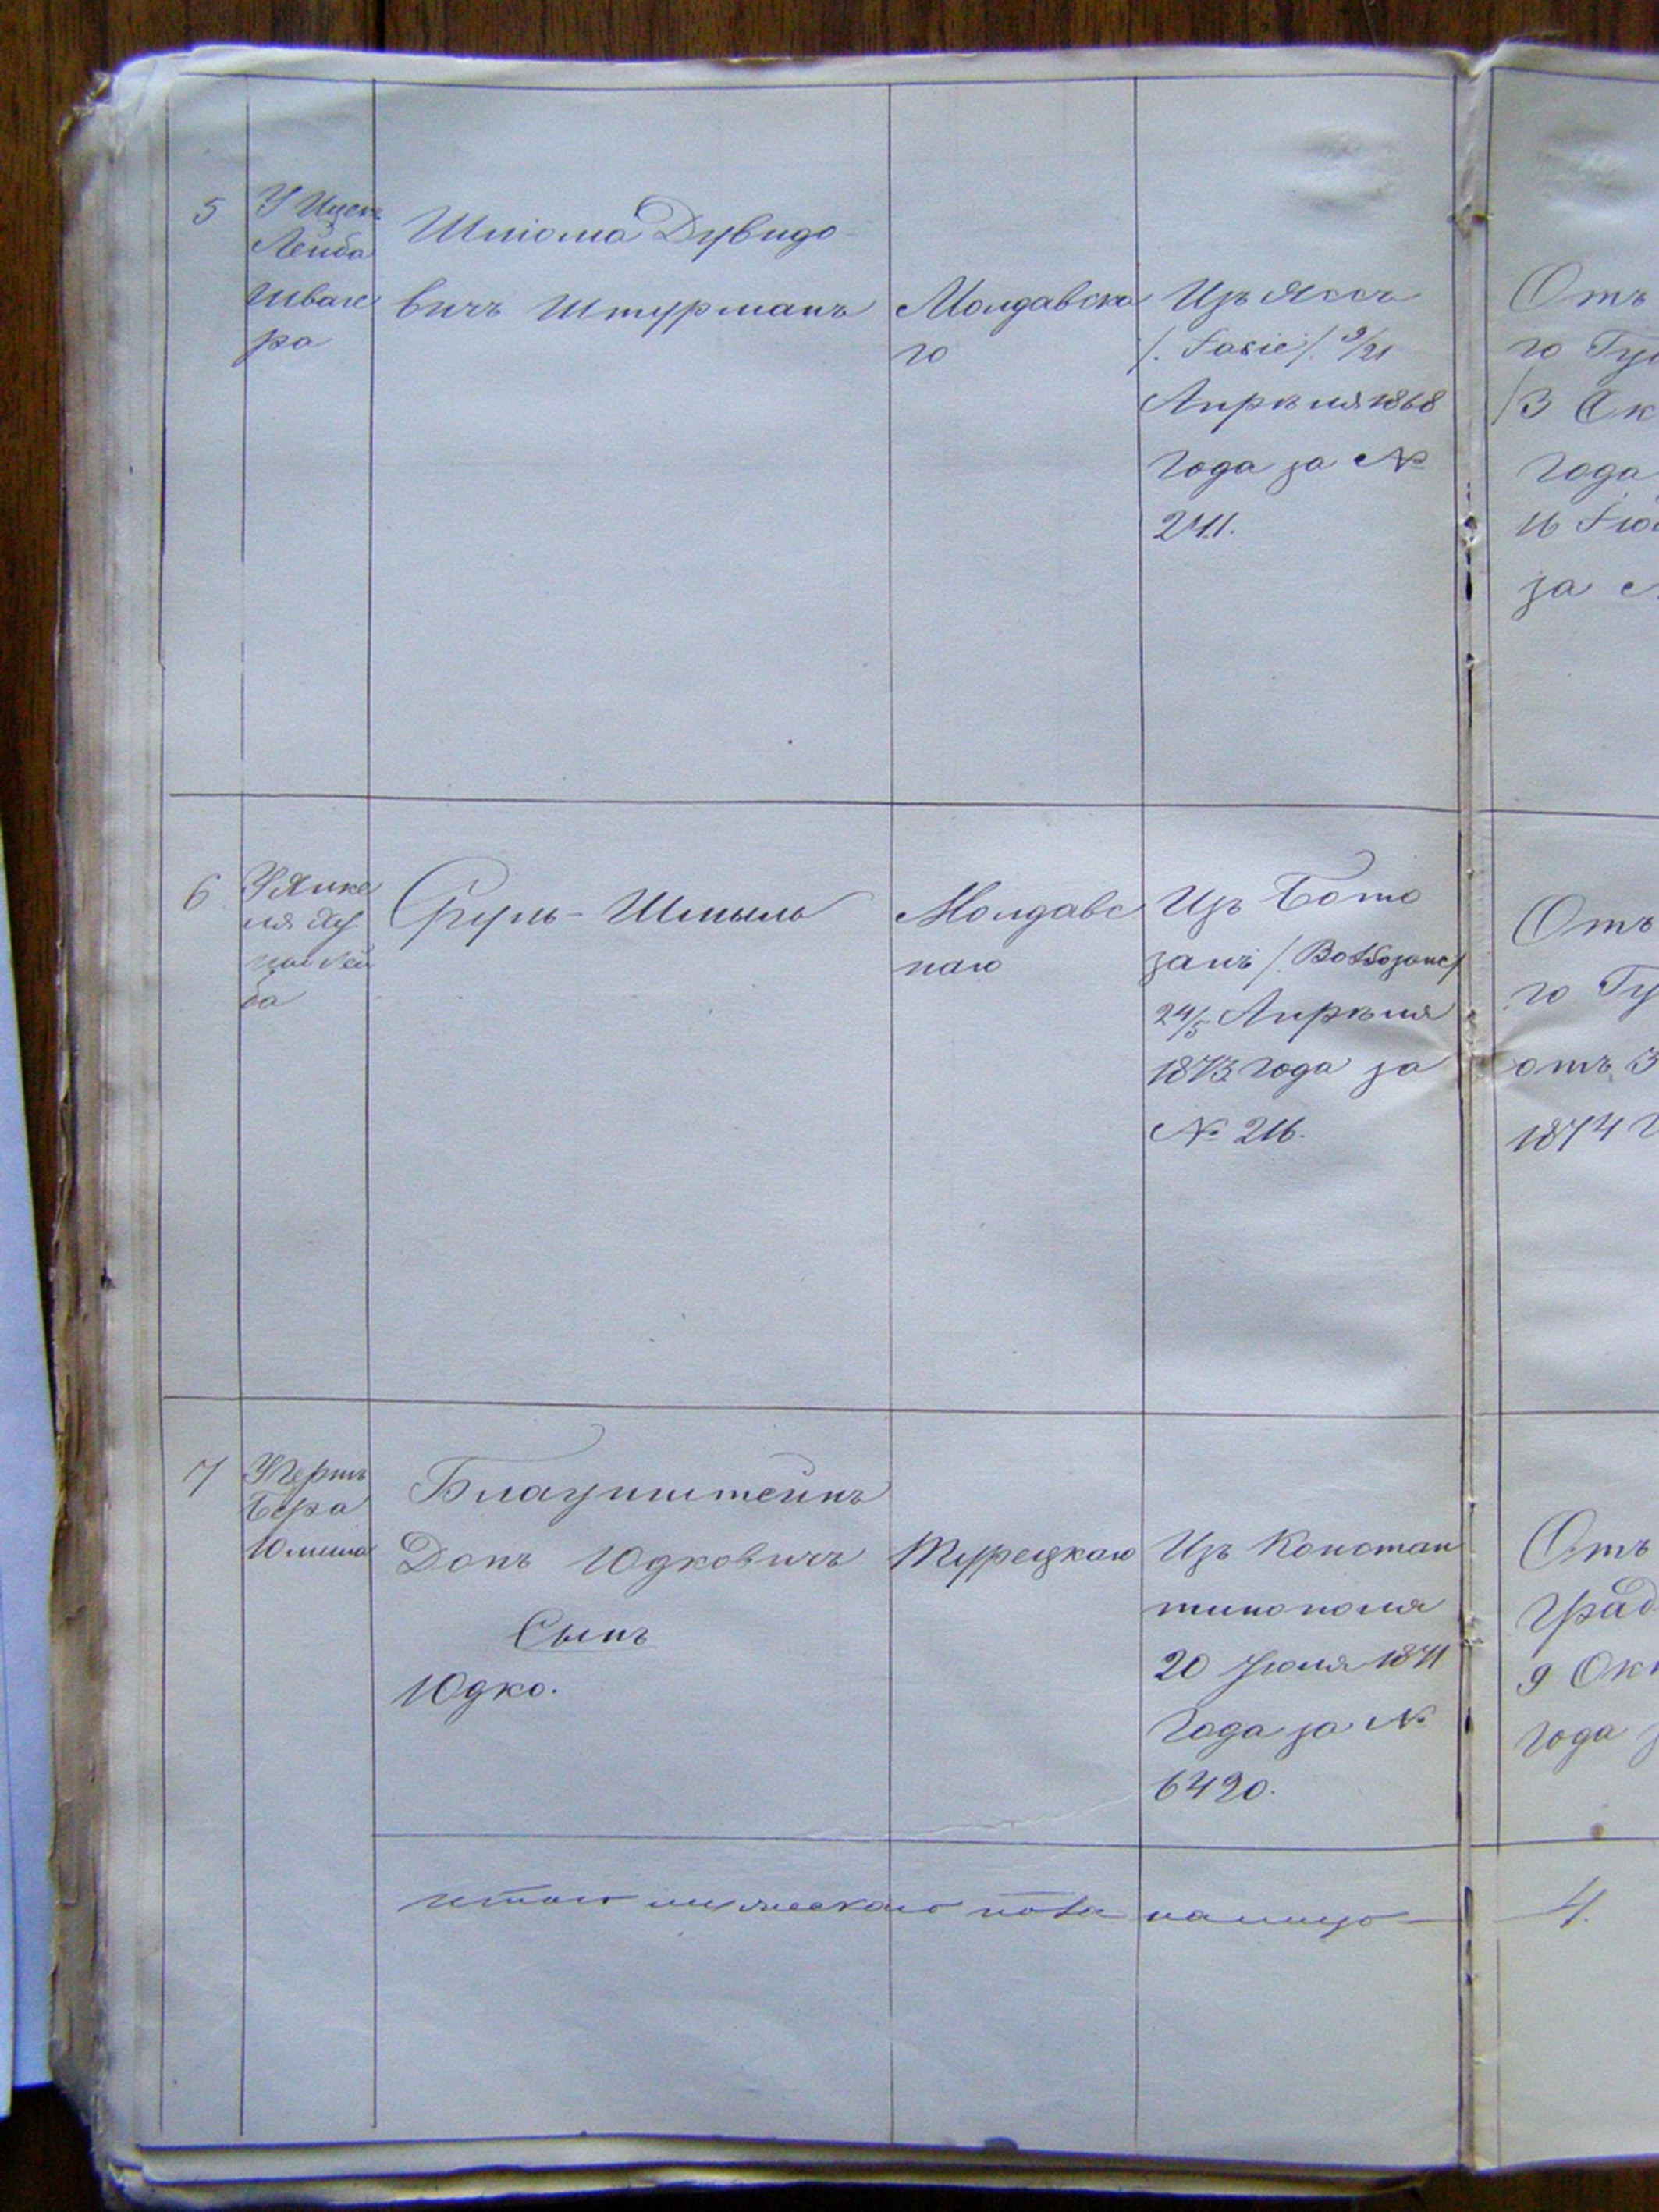 5
У Ицек
Лейба
Шваге
ра
Шліома Дувидо
вичъ Штурманъ
Молдавска
го
Изъ Яссъ
/. Jassie /. 9/21
Апрѣля 1868
года за №
241.
Отъ
го Гу
13 Ок
года
16
за
6
У Янке
ля
ба
Сруль - Шмыль
Молдавс
каго
Изъ Бото
занъ /. Bottozane/
24/5 Апрѣля
1873 года за
№ 216.
Отъ
го Гу
отъ 3
1874 г
7
У Герш
Бера
Блауштейнъ
Донъ Юдковичъ
Сынъ
Юдко.
Турецкаго
Изъ Констан
тинополя
20 Іюля 1871
года за №
6420.
Отъ
град
9 Ок
года
итого мужескаго пола налицо — 4.